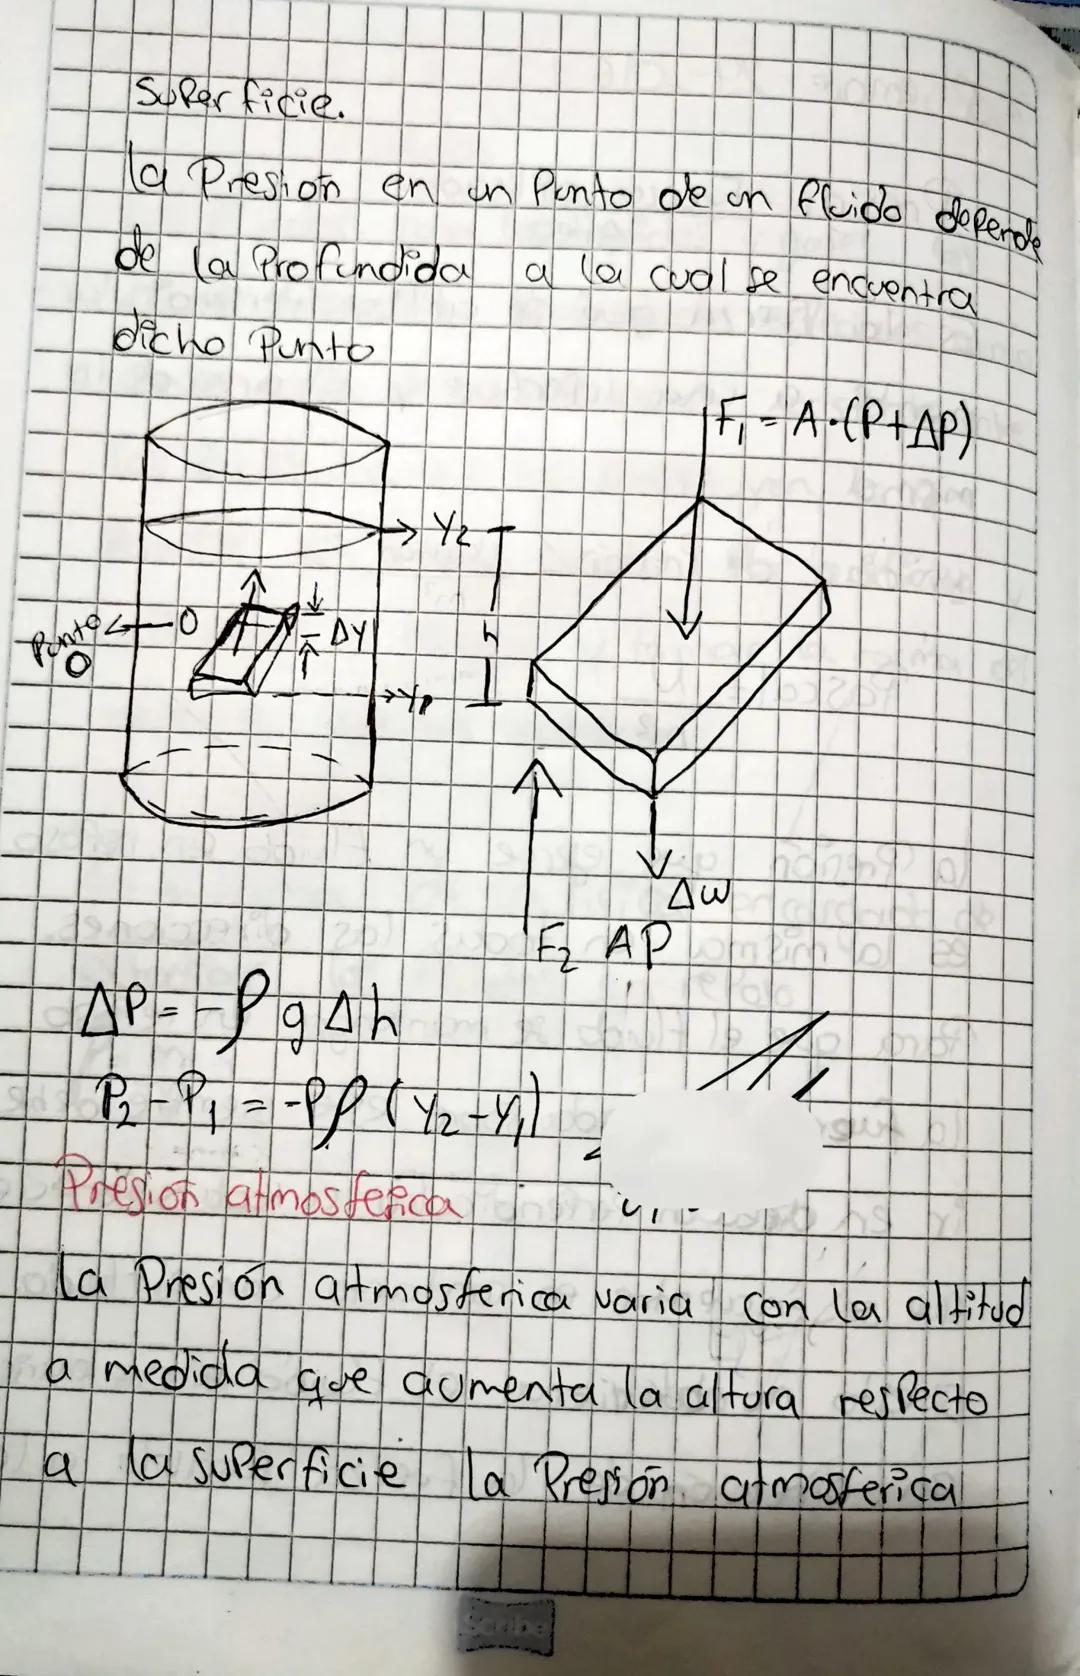 Superficie.
La Presión en un Punto de un fluido depende
de la Profundida a la cual se encuentra
dicho Punto
F₁ = A·(P+ΔP)
Y₂
Punto O
O
ΔY
h
ΔW
F₂ AP
ΔP = -ρ g Δh
P₂ - P₁ = -Pρ (Y₂-Y₁)
Presión atmosferica
La Presión atmosferica varia con la altitud
a medida que aumenta la altura respecto
a la superficie la Presión atmosferica
Scribe